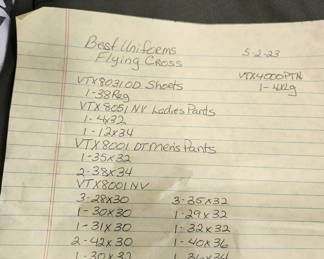 Best Uniforms
Flying Cross
5-2-23
VTX4000PTN
1-4XRg
VTX8031OD Shorts
1-38Reg
VTX8051 NV Ladies Pants
1-4x32
1-12x34
VTX8001 DT Men's Pants
1-35x32
2-38x34
VTX8001 NV
3-28x30
3-35x32
1-30x30
1-29x32
1-31x30
1-32x32
2-42x30
1-40x36
1-30x32
1-36x34